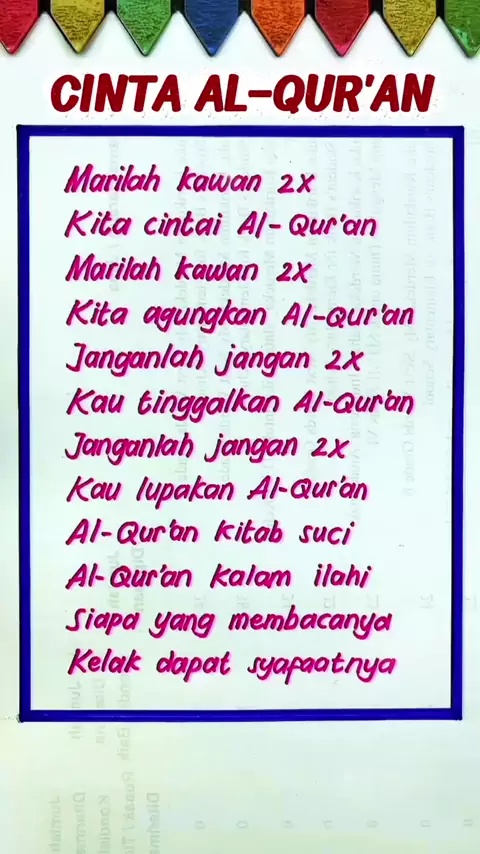 CINTA AL-QUR'AN
Marilah kawan 2x
Kita cintai Al-Qur'an
Marilah kawan 2x
Kita agungkan Al-Qur'an
Janganlah jangan 2x
Kau tinggalkan Al-Qur'an
Janganlah jangan 2x
Kau lupakan Al-Qur'an
Al-Qur'an kitab suci
Al-Qur'an kalam ilahi
Siapa yang membacanya
Kelak dapat syafaatnya